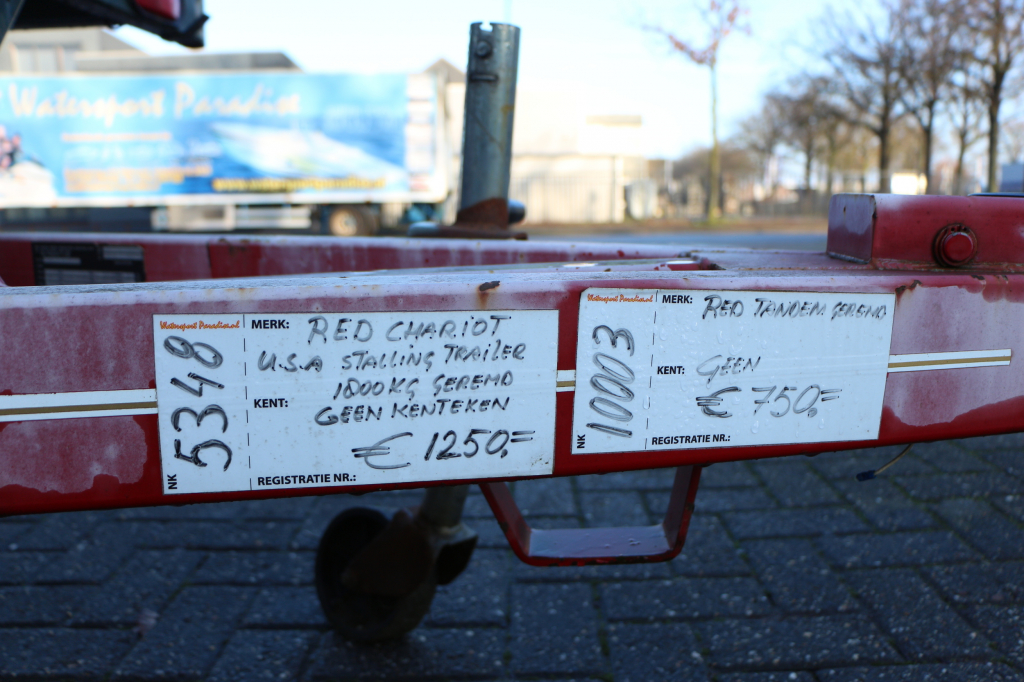 Watersport Paradise
Watersport Paradise.nl
MERK: RED CHARIOT
U.S.A STALLING TRAILER
1800 KG GEREMD
KENT: GEEN KENTEKEN
€ 1250,=
REGISTRATIE NR.:
NK 5348
Watersport Paradise.nl
MERK: RED TANDEM GEREMD
KENT: GEEN
€ 750,=
REGISTRATIE NR.:
NK 10003